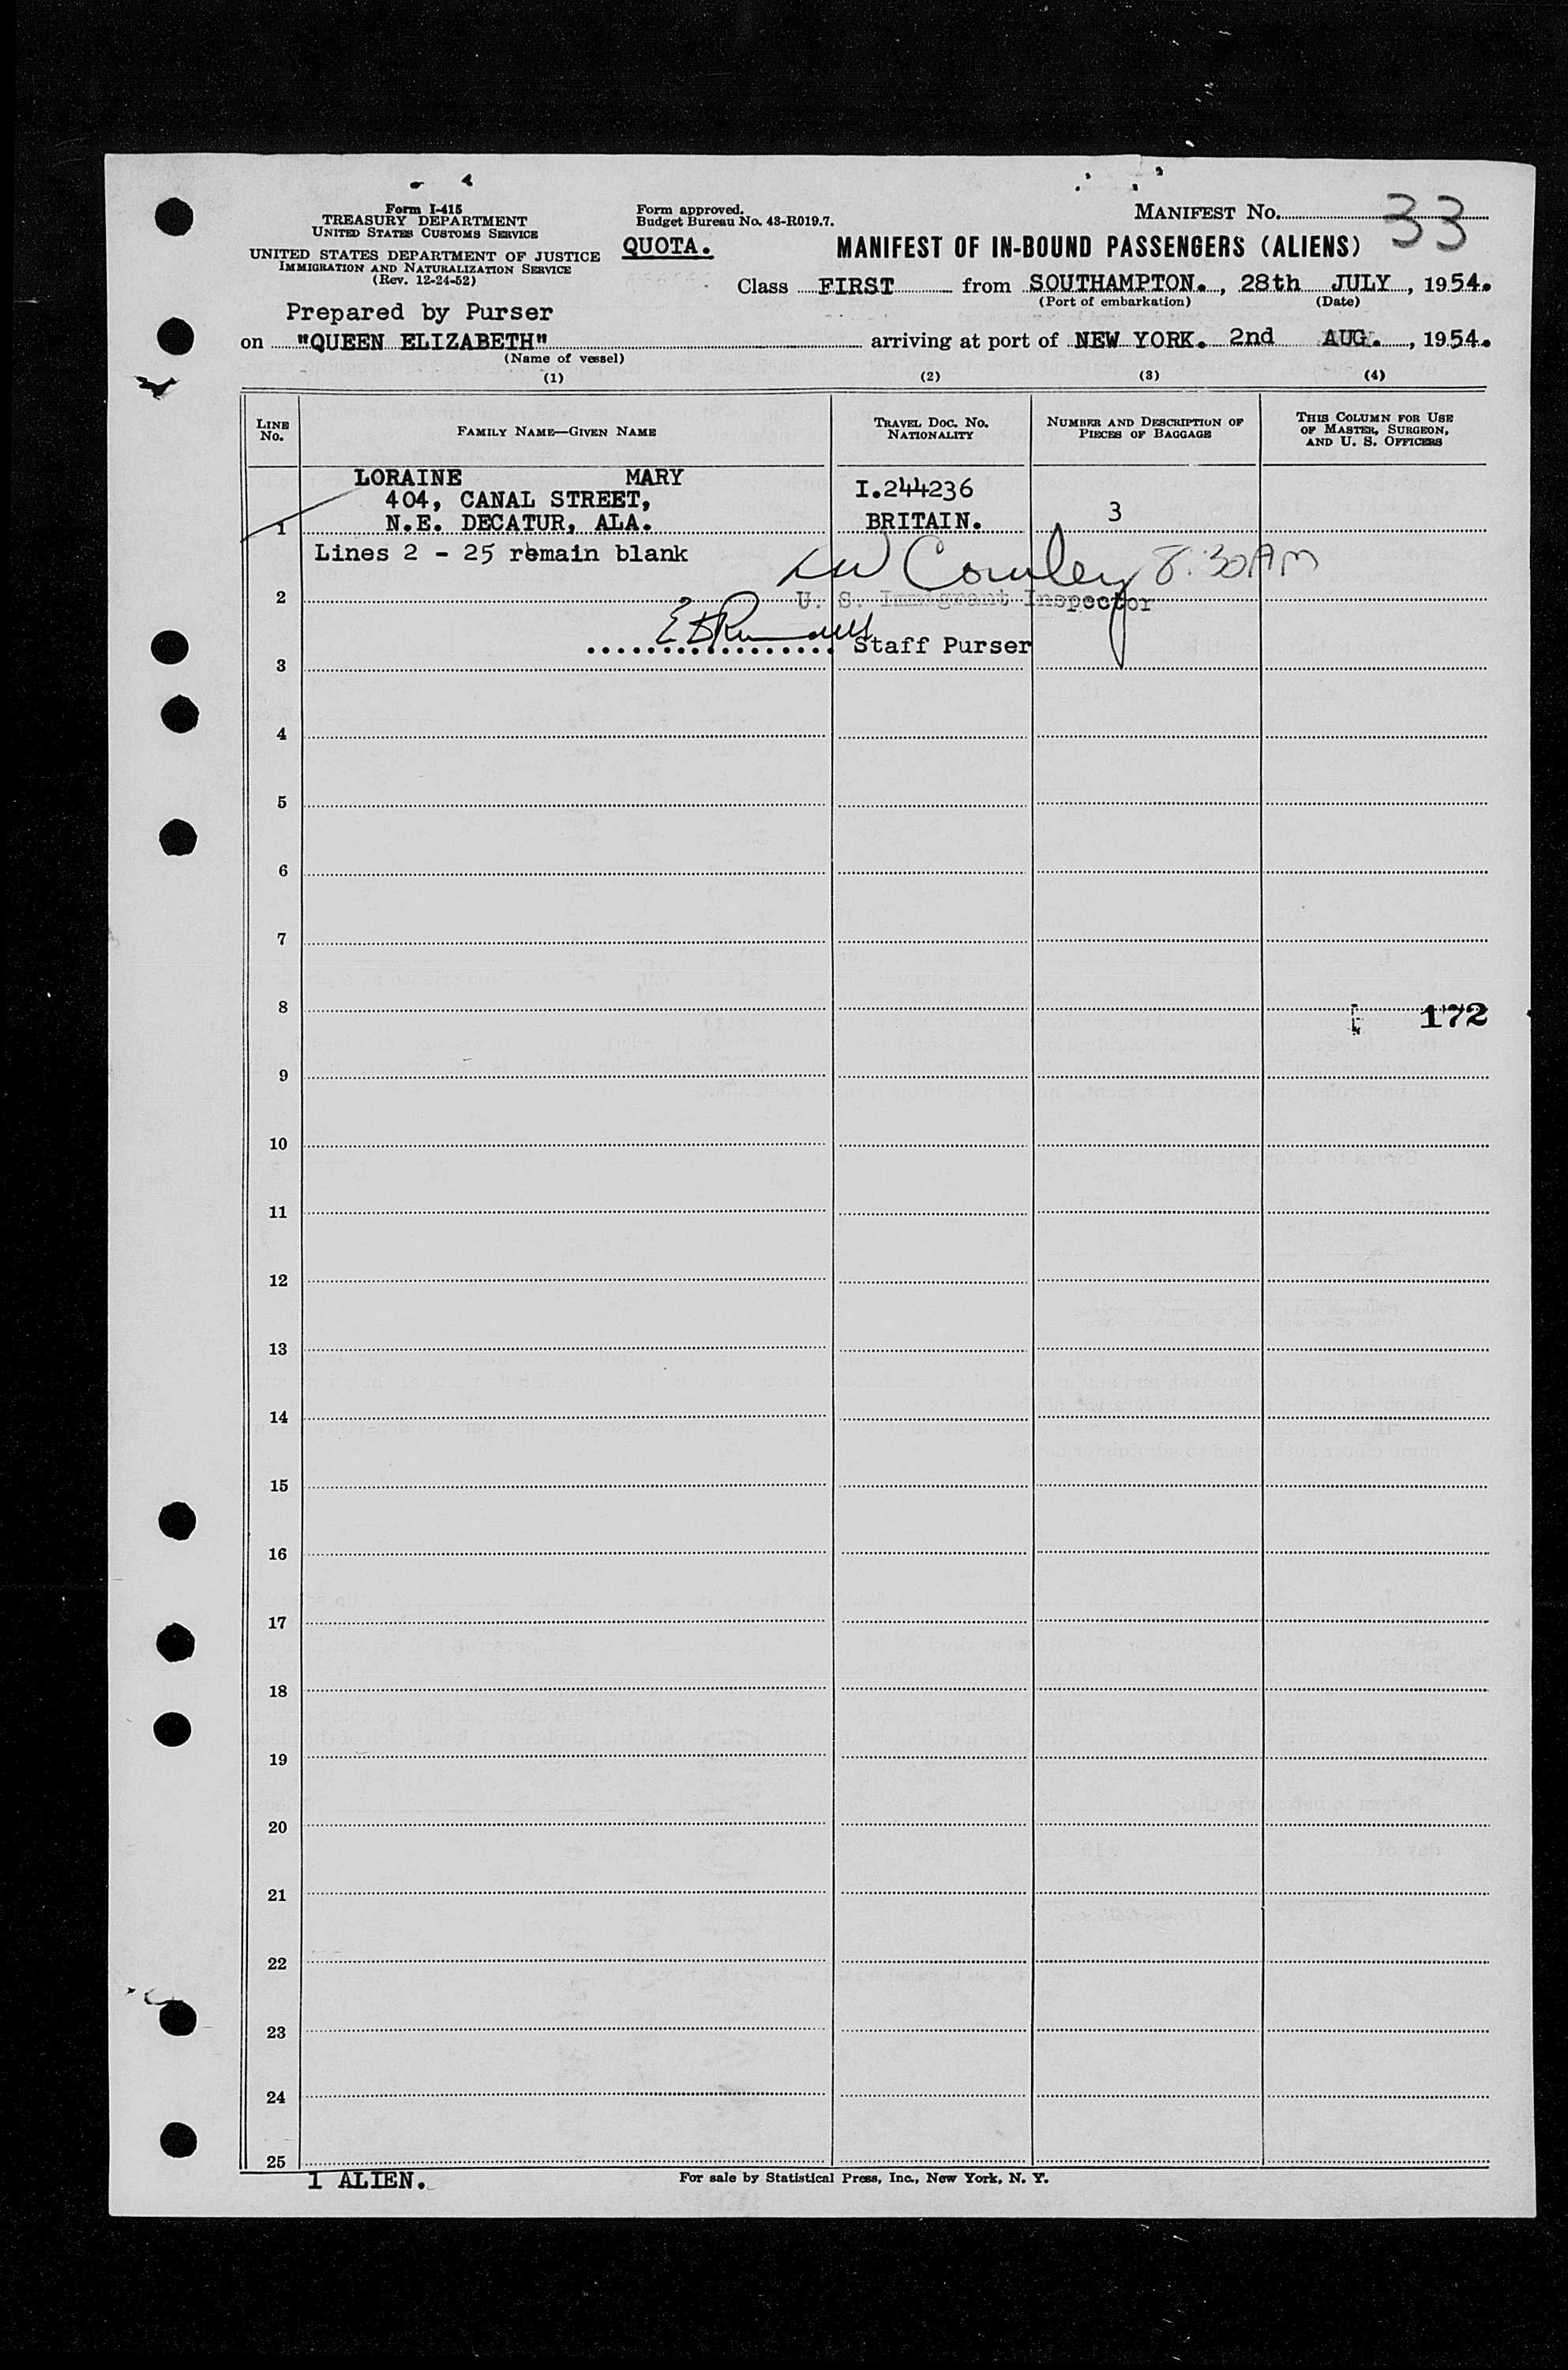 Form I-415
TREASURY DEPARTMENT
UNITED STATES CUSTOMS SERVICE
UNITED STATES DEPARTMENT OF JUSTICE
IMMIGRATION AND NATURALIZATION SERVICE
(Rev. 12-24-52)
Form approved.
Budget Bureau No. 43-R019.7.
QUOTA.
MANIFEST NO. 33
MANIFEST OF IN-BOUND PASSENGERS (ALIENS)
Class FIRST from SOUTHAMPTON. , 28th JULY , 1954.
(Port of embarkation) (Date)
Prepared by Purser
on "QUEEN ELIZABETH" arriving at port of NEW YORK. 2nd AUG. , 1954.
(Name of vessel)
(1) (2) (3) (4)
LINE NO.
FAMILY NAME—GIVEN NAME
TRAVEL DOC. NO.
NATIONALITY
NUMBER AND DESCRIPTION OF
PIECES OF BAGGAGE
THIS COLUMN FOR USE
OF MASTER, SURGEON,
AND U. S. OFFICERS
LORAINE MARY
404, CANAL STREET, I.244236
1 N.E. DECATUR, ALA. BRITAIN. 3
Lines 2 - 25 remain blank
Cowley 8:30 AM
2 U. S. Immigrant Inspector
3 Staff Purser
4
5
6
7
8 172
9
10
11
12
13
14
15
16
17
18
19
20
21
22
23
24
25
1 ALIEN.
For sale by Statistical Press, Inc., New York, N. Y.